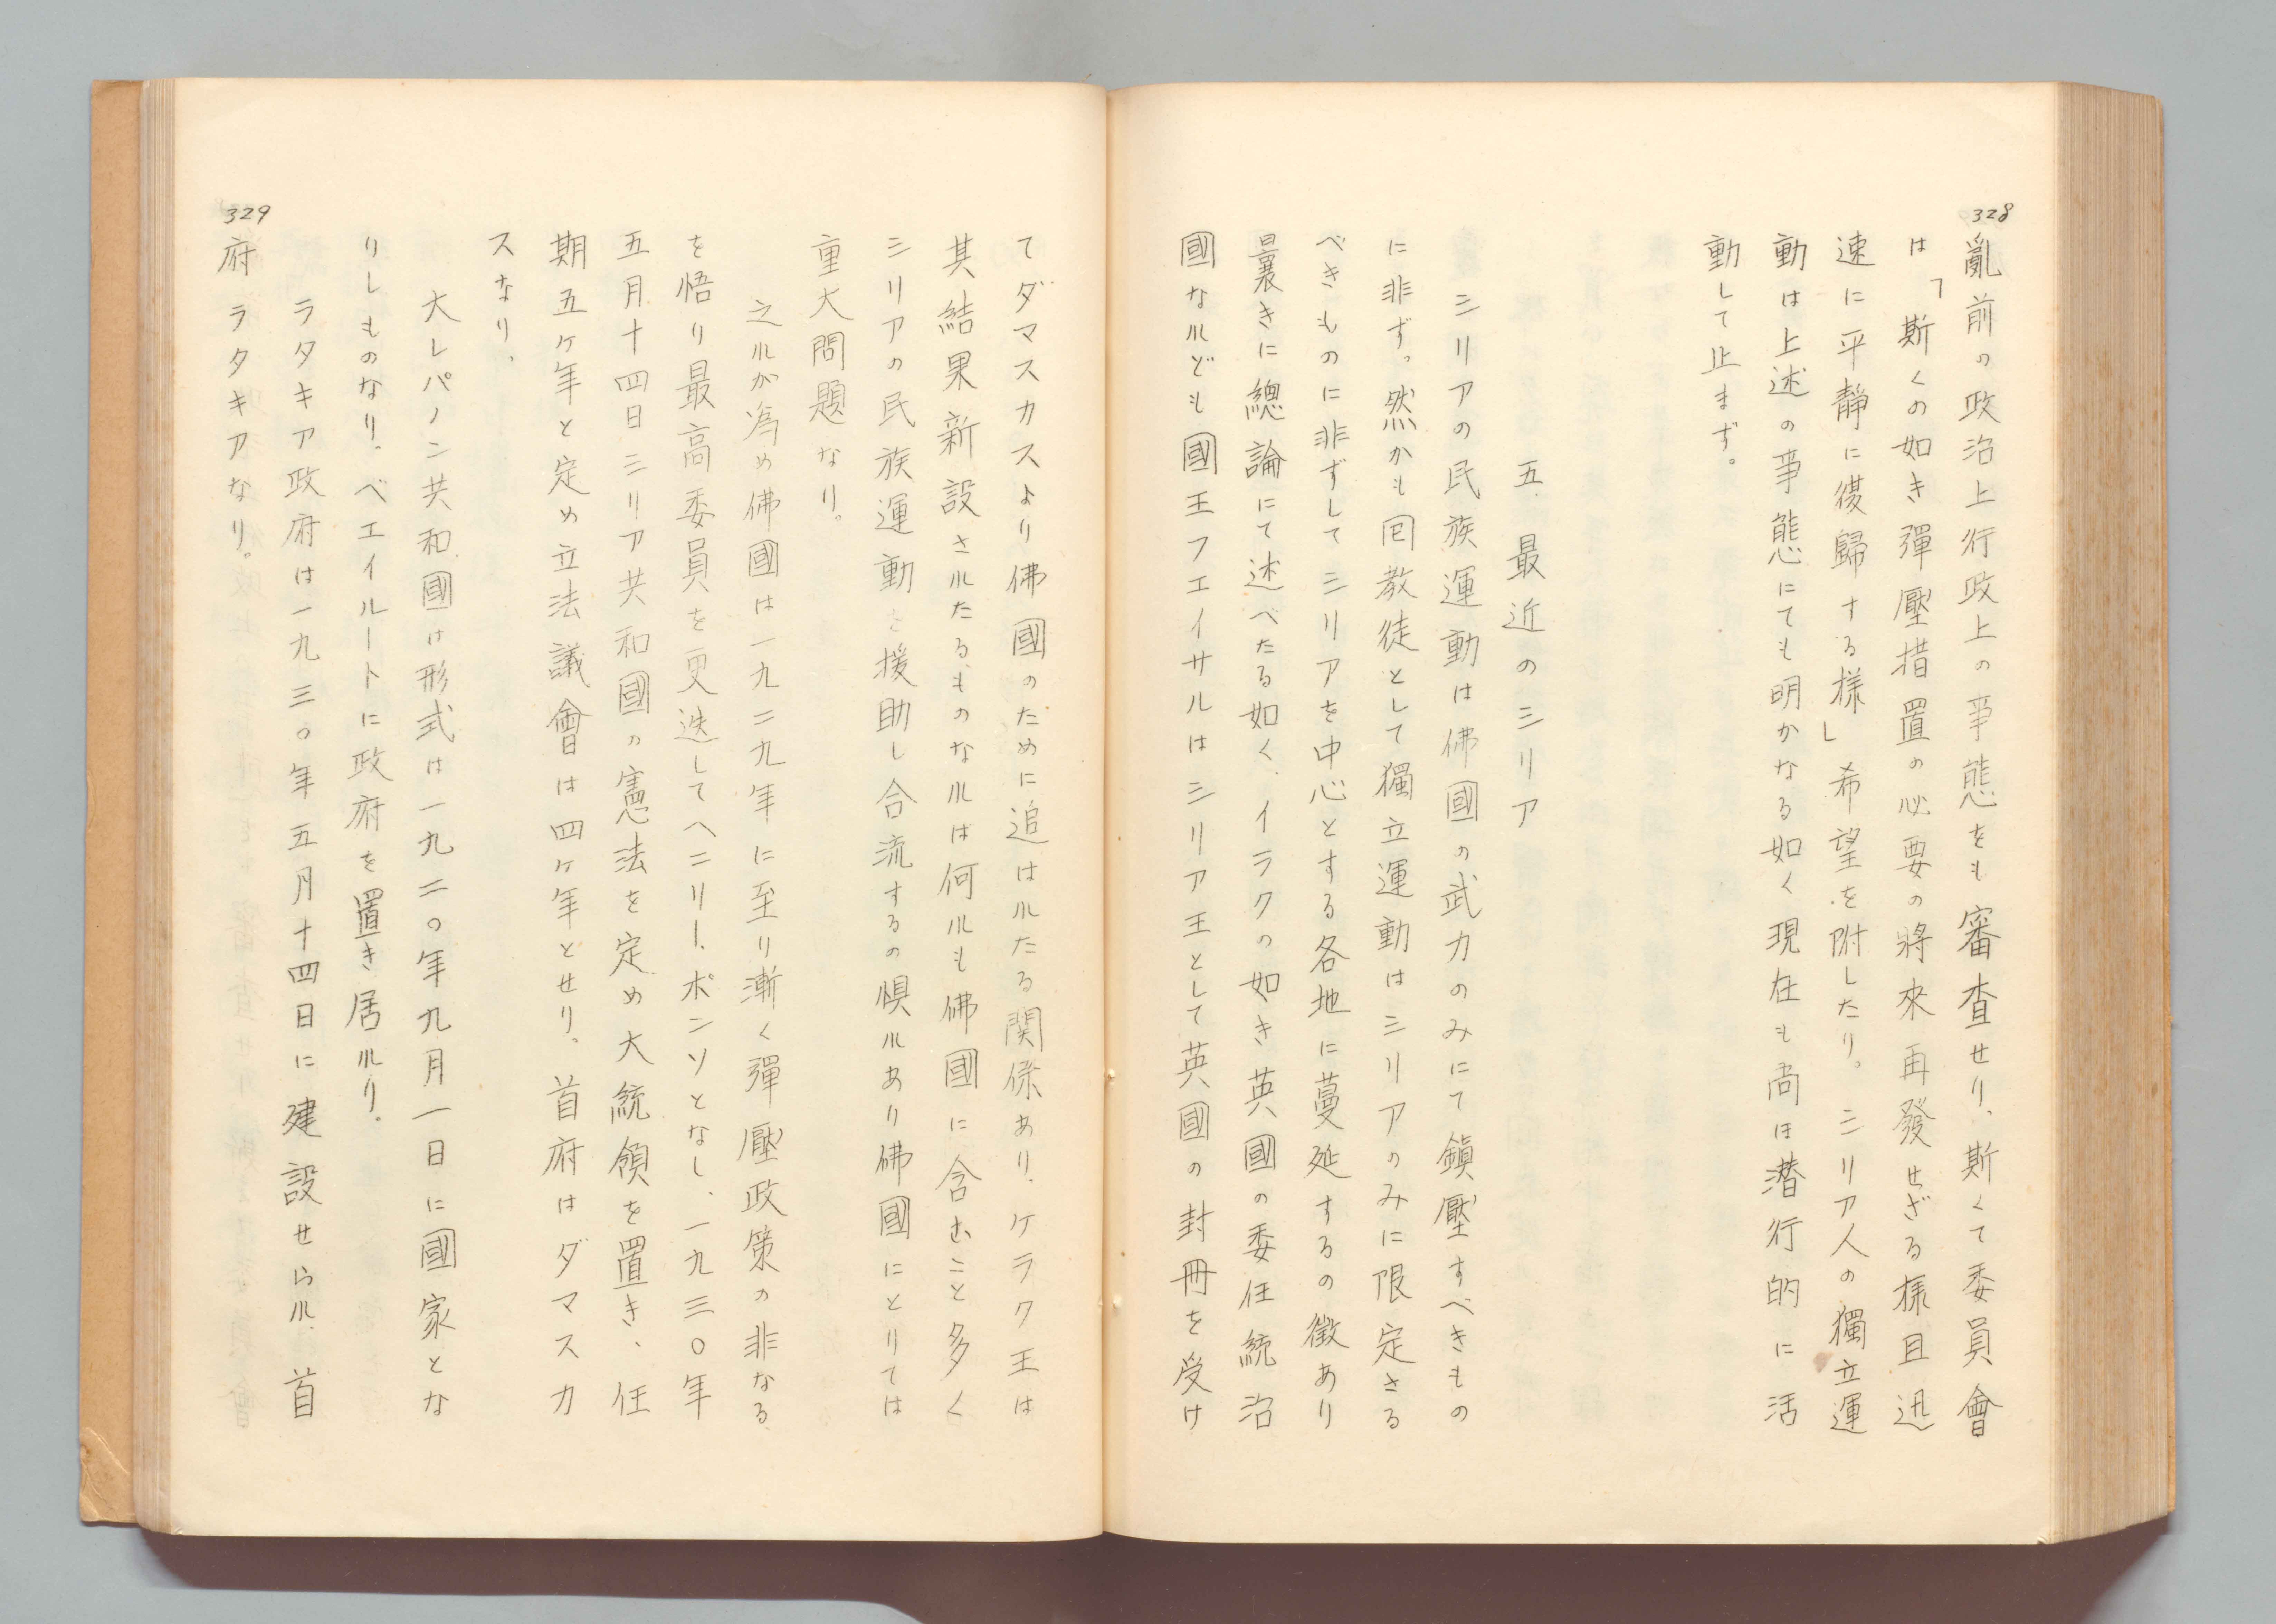 328
亂前の政治上行政上の事態をも審査せり、斯くて委員會
は「斯くの如き彈壓措置の必要の將來再發せざる樣且迅
速に平靜に復歸する樣」希望を附したり。シリア人の獨立運
動は上述の事態にても明かなる如く現在も尚ほ潜行的に活
動して止まず。
五、最近のシリア
シリアの民族運動は佛國の武力のみにて鎮壓すべきもの
に非ず。然かも回教徒として獨立運動はシリアのみに限定さる
べきものに非ずしてシリアを中心とする各地に蔓延するの徵あり
曩きに總論にて述べたる如く、イラクの如き英國の委任統治
國なルども國王フエイサルはシリア王として英國の封冊を受け
てダマスカスより佛國のために追はルたる関係あり、ケラク王は
其結果新設さルたるものなルは何ルも佛國に含むこと多く
シリアの民族運動を援助し合流するの惧ルあり佛國にとりては
重大問題なり。
之ルが為め佛國は一九二九年に至り漸く彈壓政策の非なる
を悟り最高委員を更迭してヘニリー、ポンソとなし、一九三〇年
五月十四日シリア共和國の憲法を定め大統領を置き、任
期五ヶ年と定め立法議會は四ヶ年とせり。首府はダマスカ
スなり。
大レパノン共和國は形式は一九二〇年九月一日に國家とな
りしものなり、ベエイルートに政府を置き居ルり。
ラタキア政府は一九三〇年五月十四日に建設せらル、首
329
府ラタキアなり。